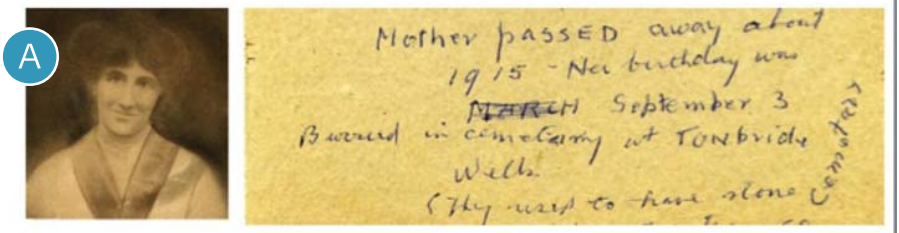 A
Mother passed away about
1915 - Her birthday was
MARCH September 3
Buried in cemetarry at TONBRIDGE
Wells
(They used to have stone
cemetary